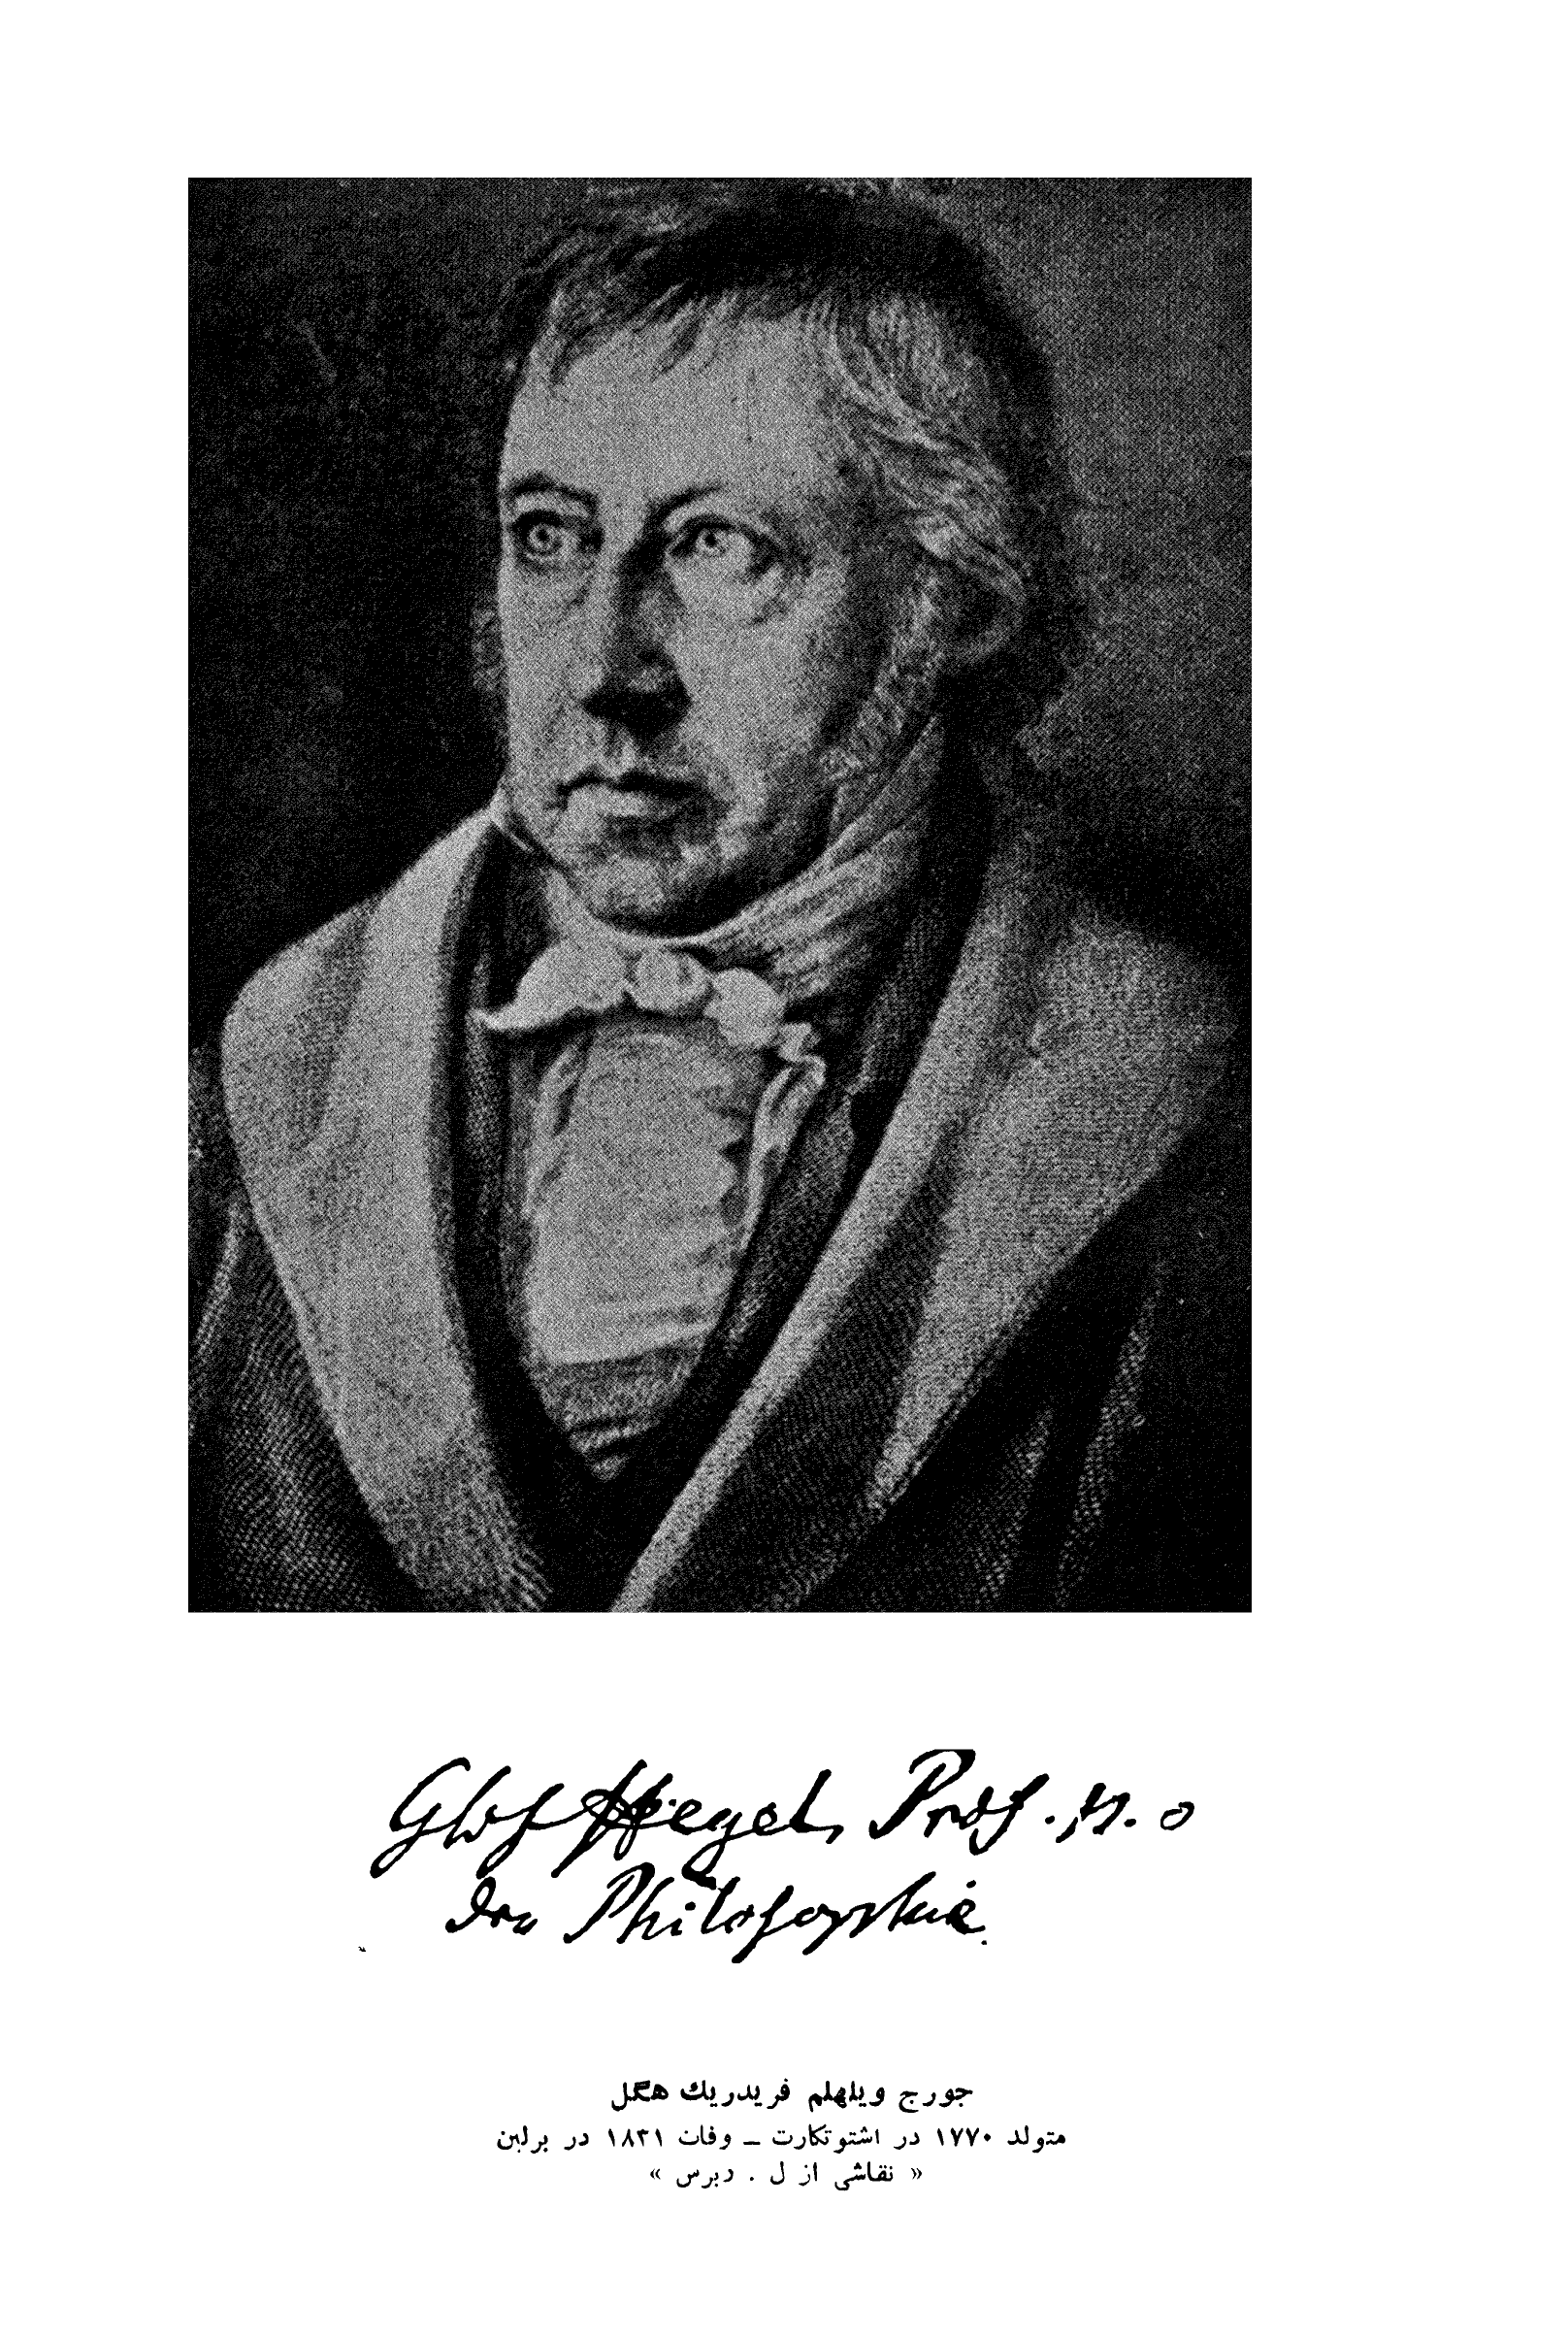 Hegel, Prof.
der Philosophie.
جورج ویلهلم فریدریك هگل
متولد ۱۷۷۰ در اشتوتكارت – وفات ۱۸۳۱ در برلین
« نقاشی از ل . دبرس »